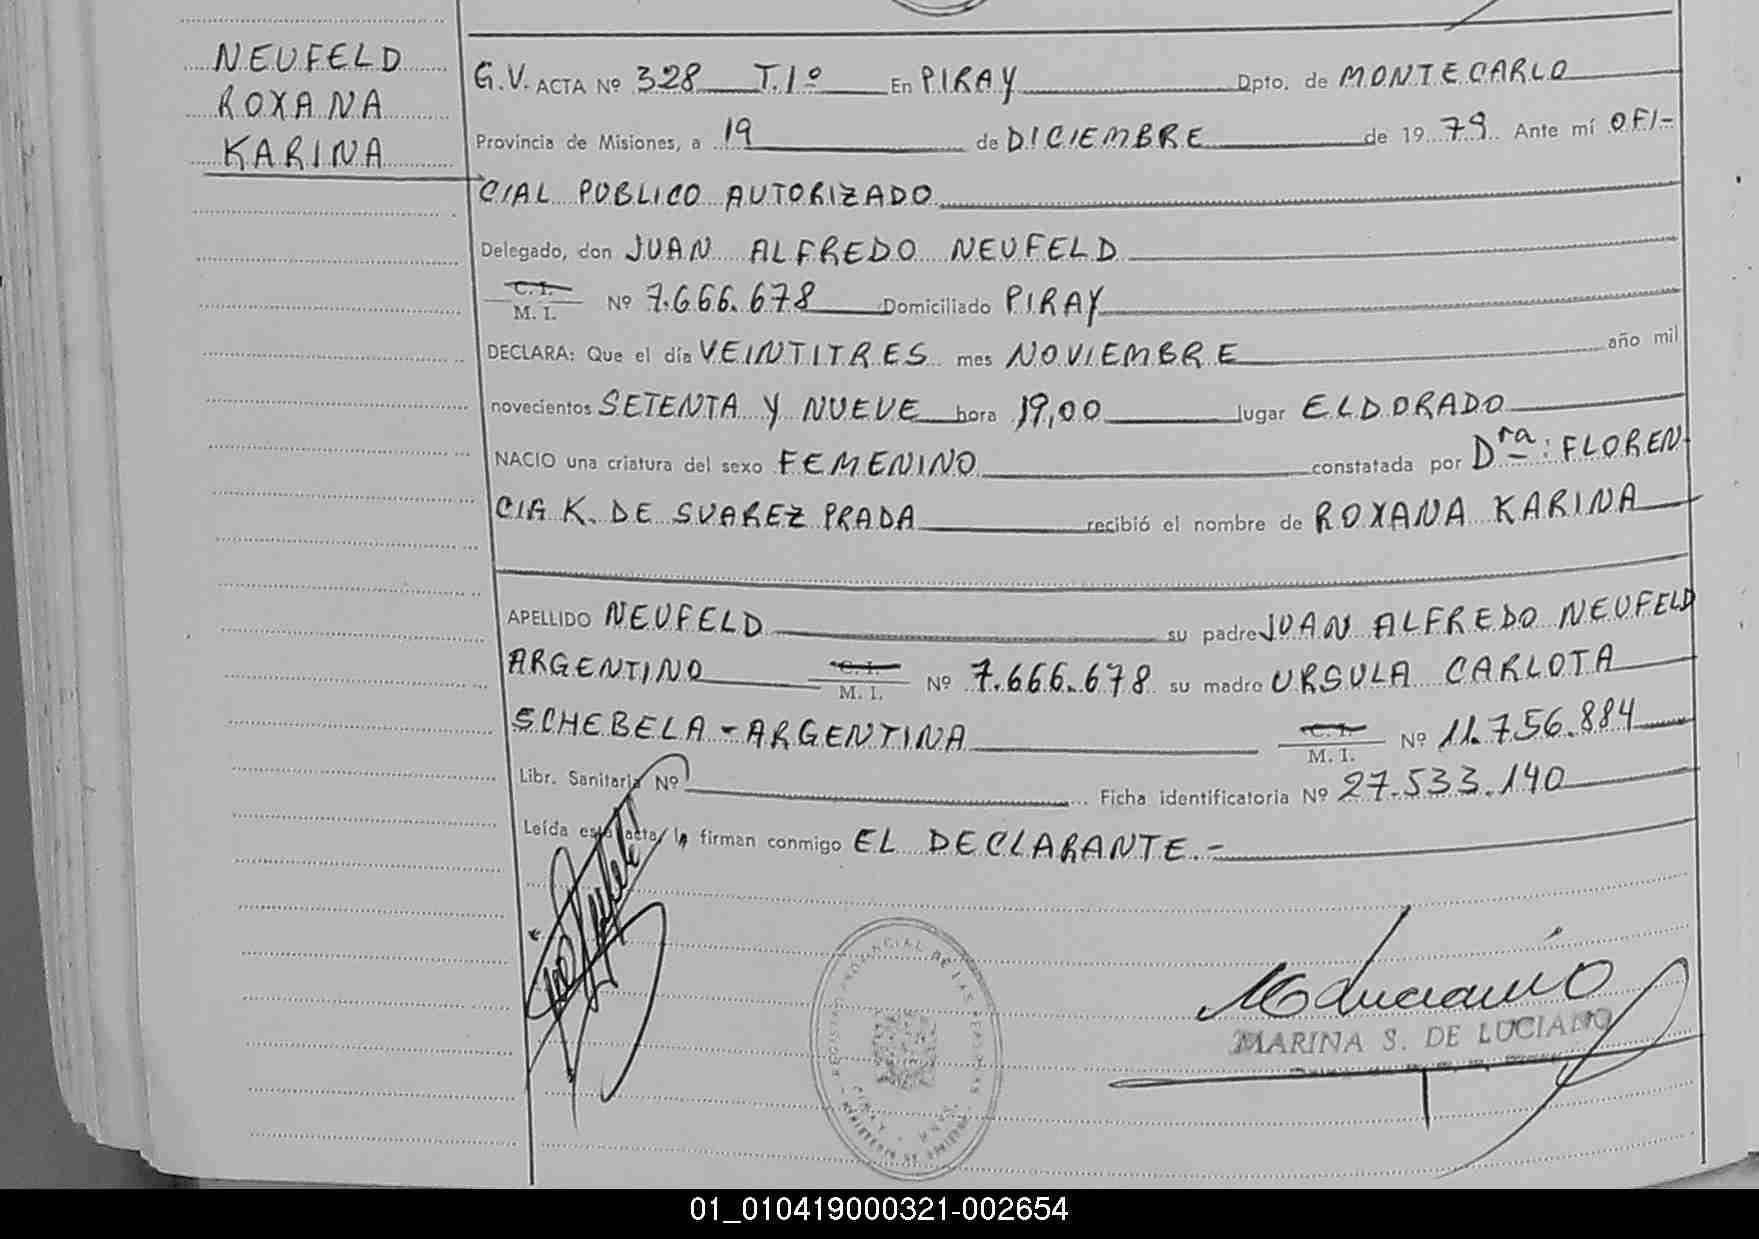 NEUFELD
ROXANA
KARINA
G.V. ACTA Nº 328 T.1º En PIRAY Dpto. de MONTECARLO
Provincia de Misiones, a 19 de DICIEMBRE de 1979 Ante mí OFI-
CIAL PUBLICO AUTORIZADO
Delegado, don JUAN ALFREDO NEUFELD
C. I.
M. I. Nº 7.666.678 Domiciliado PIRAY
DECLARA: Que el día VEINTITRES mes NOVIEMBRE año mil
novecientos SETENTA Y NUEVE hora 19,00 lugar ELDORADO
NACIO una criatura del sexo FEMENINO constatada por Dra: FLOREN
CIA K. DE SUAREZ PRADA recibió el nombre de ROXANA KARINA
APELLIDO NEUFELD su padre JUAN ALFREDO NEUFELD
ARGENTINO C. I. M. I. Nº 7.666.678 su madre URSULA CARLOTA
SCHEBELA - ARGENTINA C. I. M. I. Nº 11.756.884
Libr. Sanitaria Nº Ficha identificatoria Nº 27.533.140
Leída esta acta, la firman conmigo EL DECLARANTE.-
REGISTRO PROVINCIAL DE LAS PERSONAS
MARINA S. DE LUCIANO
01_010419000321-002654